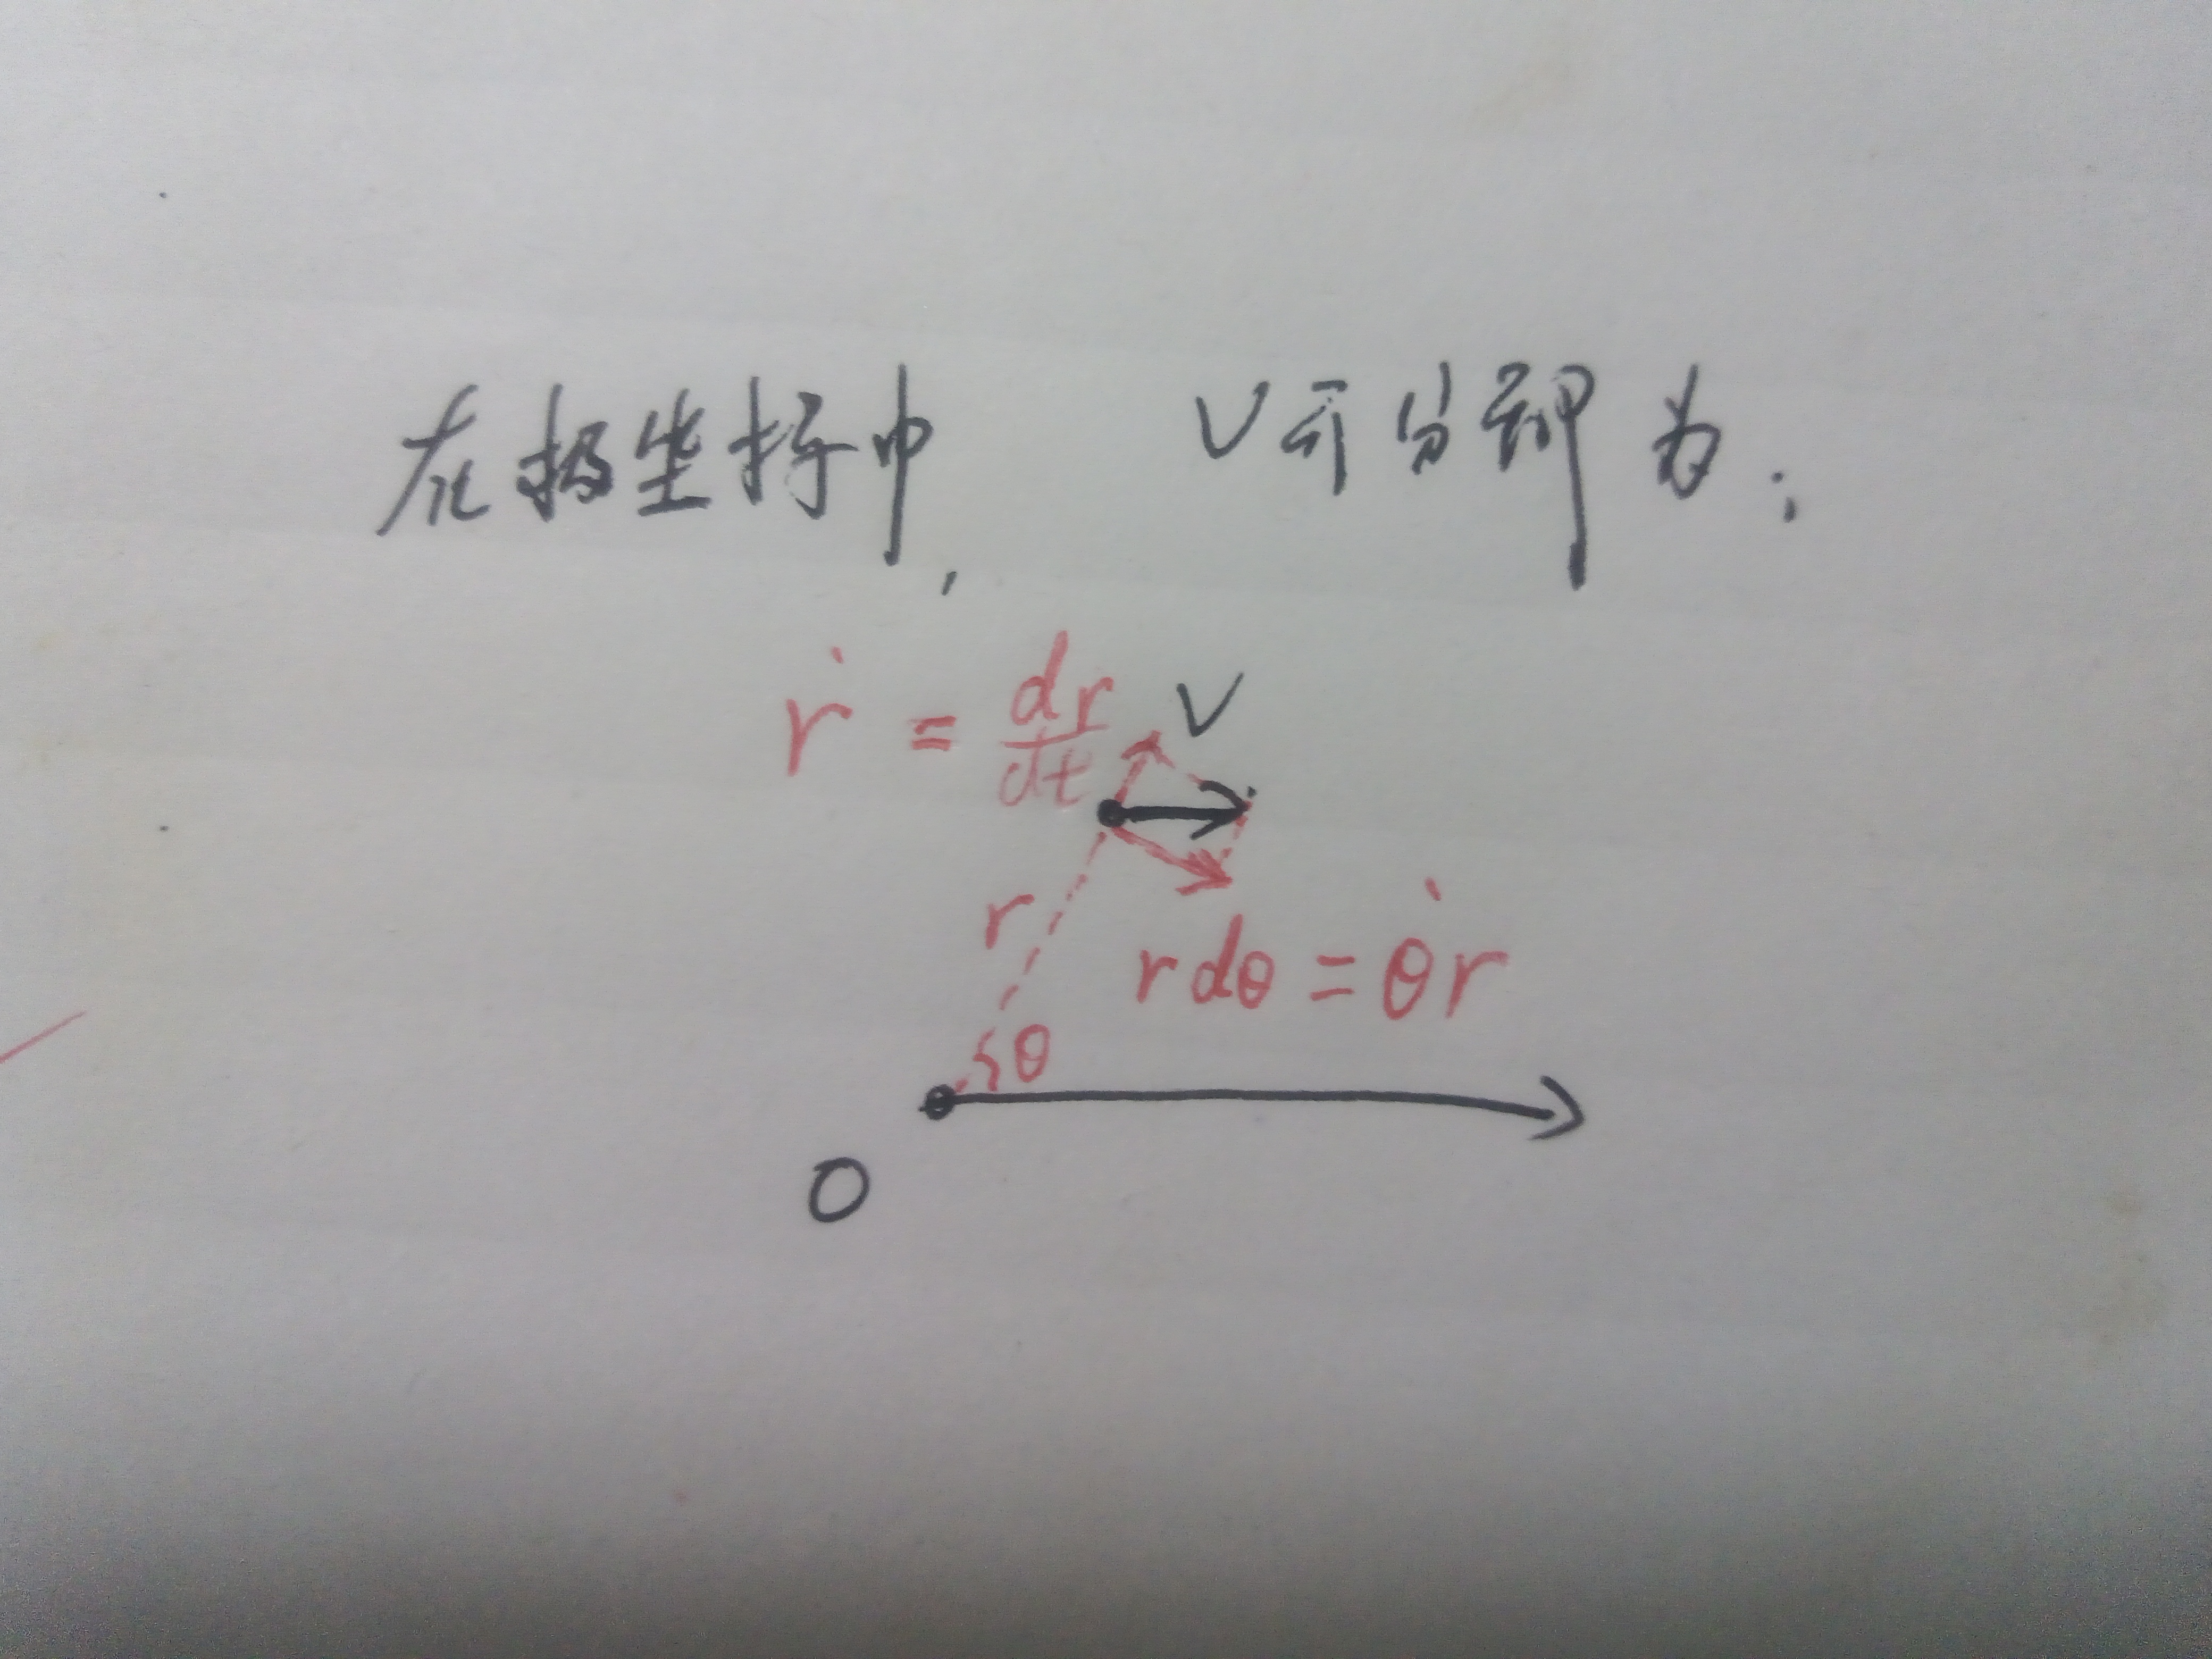 在极坐标中, V可分解为:
ṙ = dr/dt
V
r
rdθ = θ̇r
θ
O